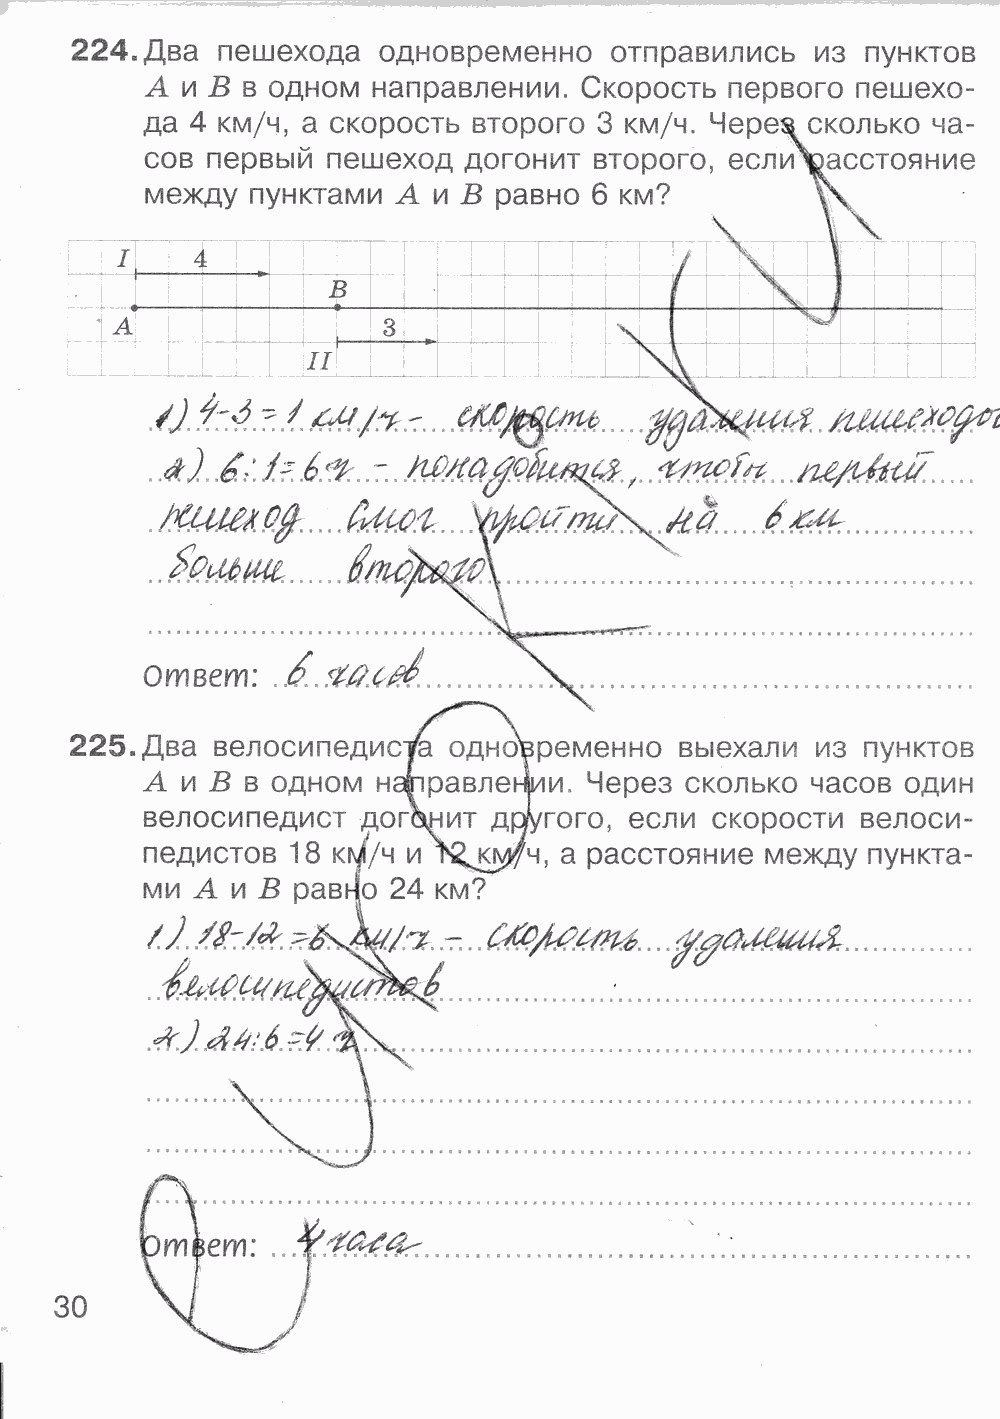 224. Два пешехода одновременно отправились из пунктов
A и B в одном направлении. Скорость первого пешехо-
да 4 км/ч, а скорость второго 3 км/ч. Через сколько ча-
сов первый пешеход догонит второго, если расстояние
между пунктами A и B равно 6 км?
I 4
B
A 3
II
1) 4-3=1 км/ч - скорость удаления пешеходов
2) 6:1=6ч - понадобится, чтобы первый
пешеход смог пройти на 6 км
больше второго
Ответ: 6 часов
225. Два велосипедиста одновременно выехали из пунктов
A и B в одном направлении. Через сколько часов один
велосипедист догонит другого, если скорости велоси-
педистов 18 км/ч и 12 км/ч, а расстояние между пункта-
ми A и B равно 24 км?
1) 18-12=6 км/ч - скорость удаления
велосипедистов
2) 24:6=4 ч
Ответ: 4 часа
30